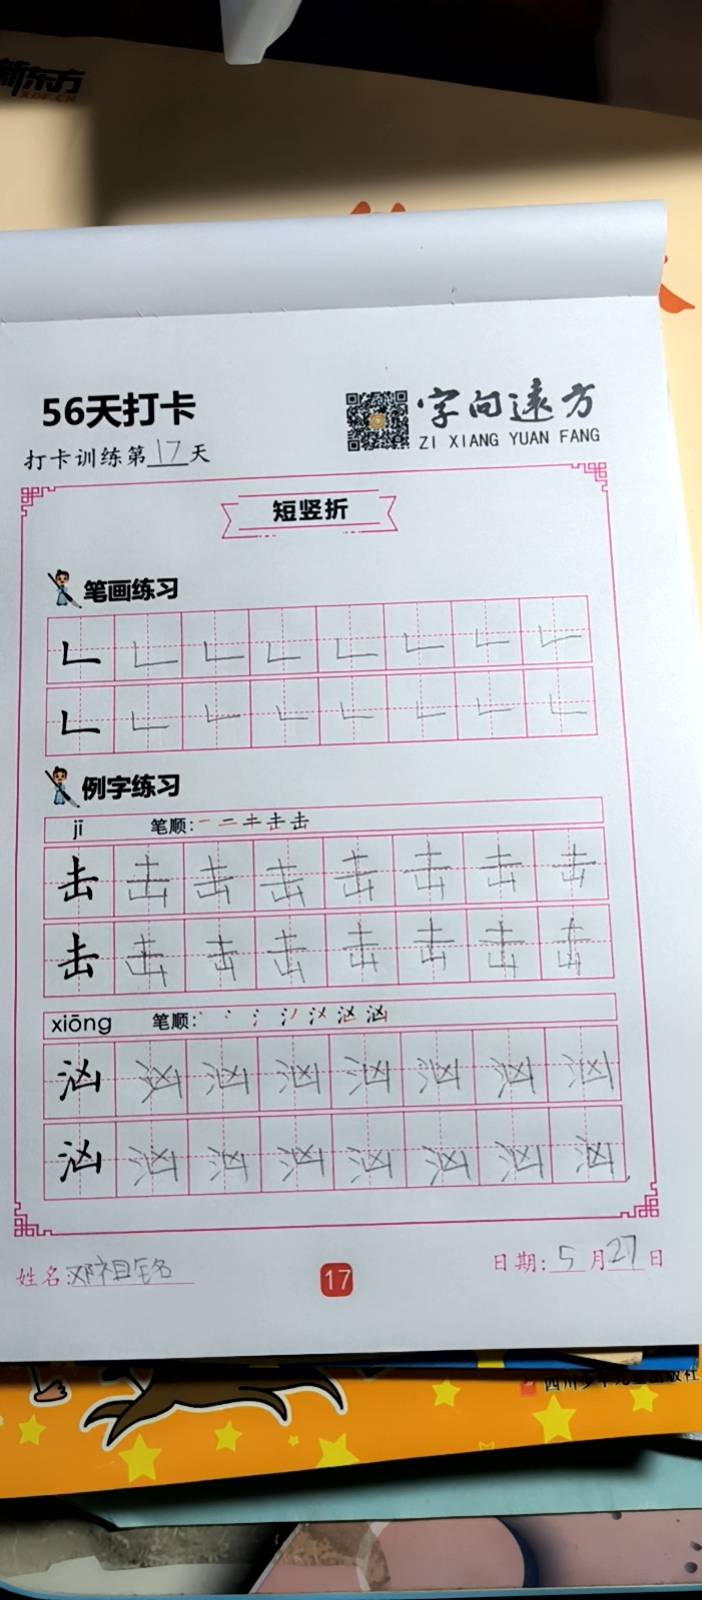 新东方
XDF.CN
56天打卡
字向遠方
ZI XIANG YUAN FANG
打卡训练第17天
短竖折
笔画练习
𠃊 𠃊 𠃊 𠃊 𠃊 𠃊 𠃊 𠃊
𠃊 𠃊 𠃊 𠃊 𠃊 𠃊 𠃊 𠃊
例字练习
jī 笔顺:
击 击 击 击 击 击 击 击
击 击 击 击 击 击 击 击
xiōng 笔顺:
汹 汹 汹 汹 汹 汹 汹 汹
汹 汹 汹 汹 汹 汹 汹 汹
姓名:邓祖铭
17
日期:5月27日
四川少年儿童出版社